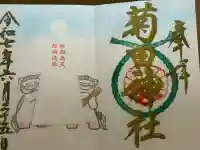 奉拝
菊田神社
令和七年六月二十五日